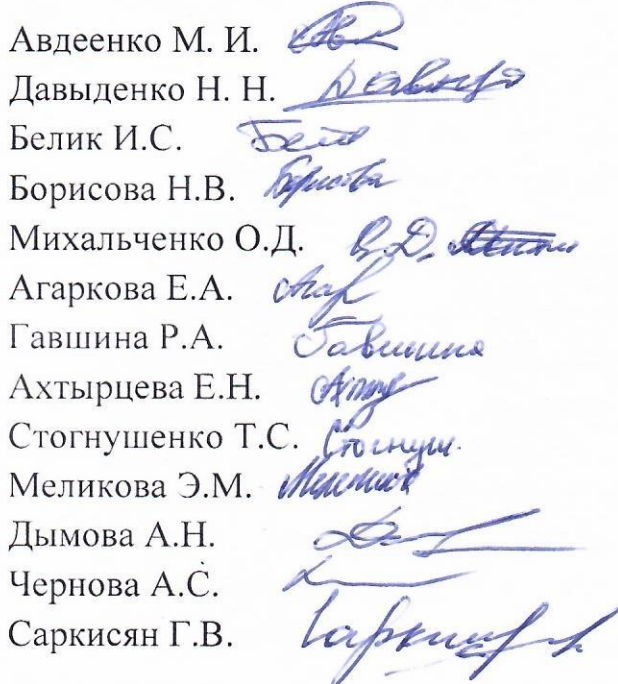 Авдеенко М. И.
Давыденко Н. Н.
Белик И.С.
Борисова Н.В. Борисова
Михальченко О.Д.
Агаркова Е.А. Агар
Гавшина Р.А. Гавшина
Ахтырцева Е.Н.
Стогнушенко Т.С. Стогнуш.
Меликова Э.М.
Дымова А.Н.
Чернова А.С.
Саркисян Г.В.